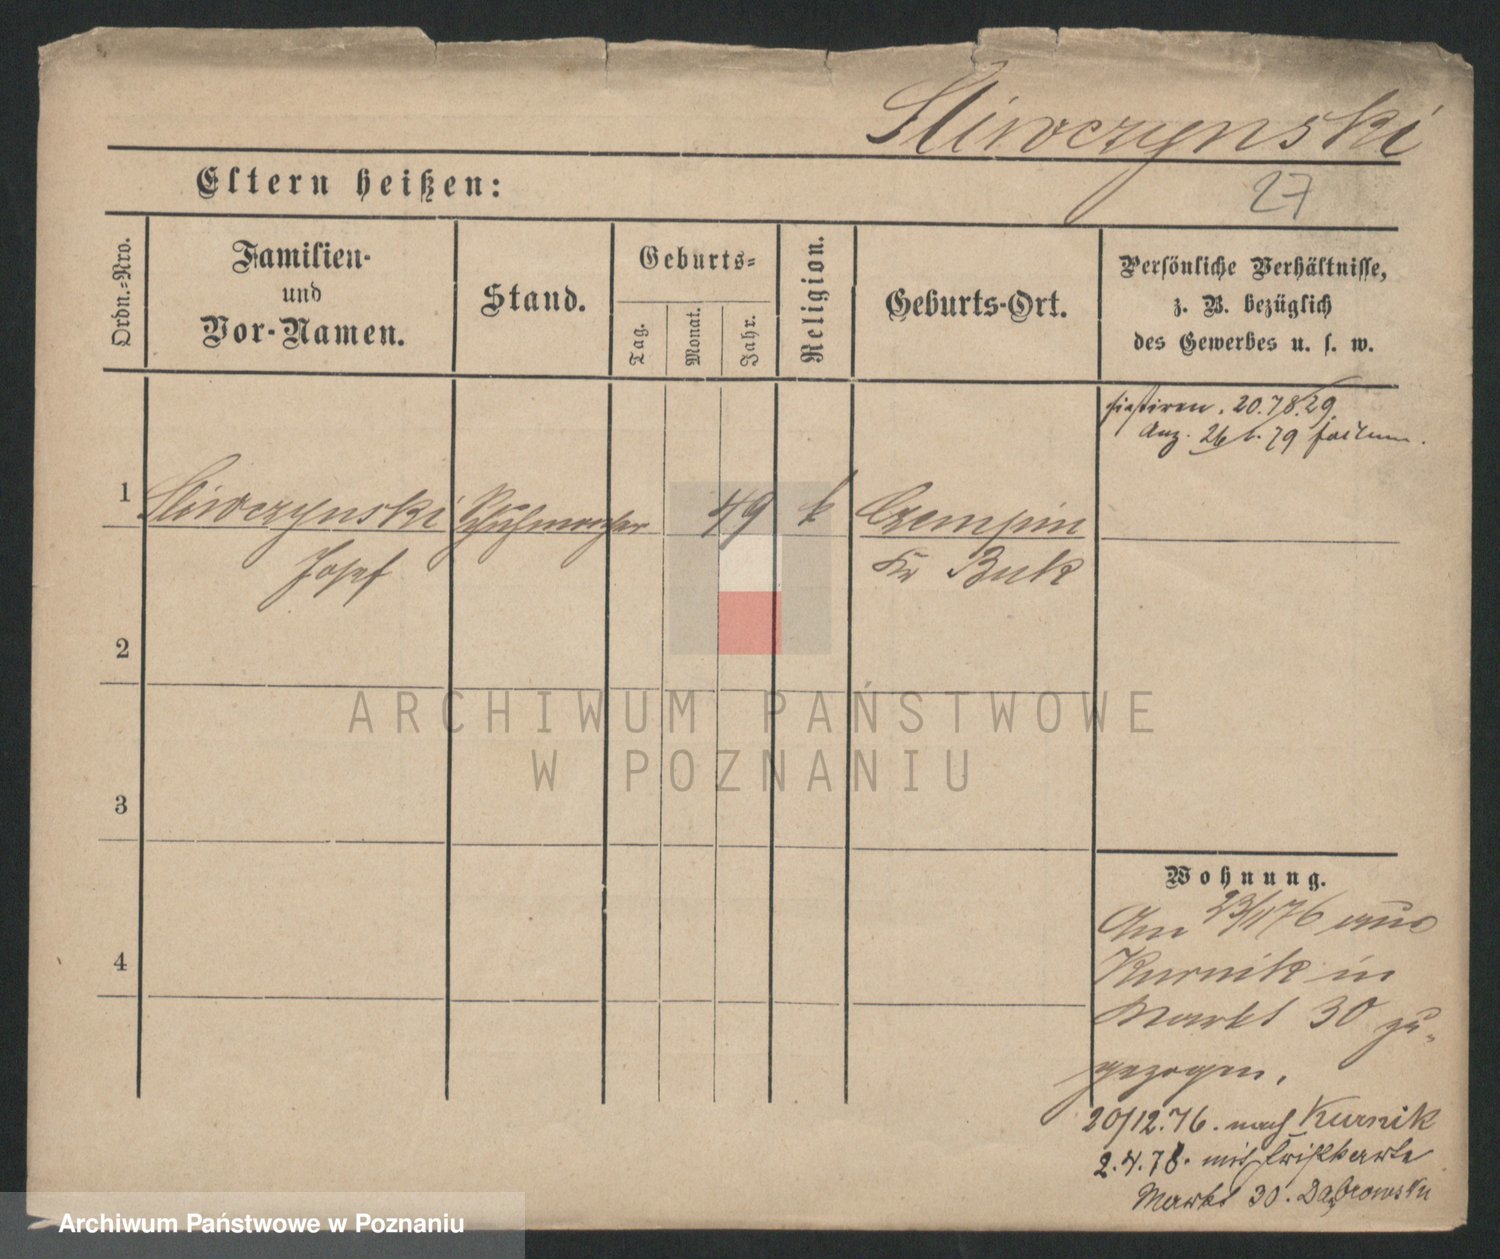 Sliwczynski
Eltern heißen:
27
Ordn.-Nro.
Familien-
und
Vor-Namen.
Stand.
Geburts-
Tag.
Monat.
Jahr.
Religion.
Geburts-Ort.
Persönliche Verhältnisse,
z. B. bezüglich
des Gewerbes u. s. w.
20.78.29.
Anz. 26/6. 79
1
Sliwczynski
Josef
Schuhmacher
49
k
Czempin
Kr Buk
2
3
4
Wohnung.
Am 23/1176 aus
Kurnik in
Markt 30 zu-
gezogen.
20/12.76. nach Kurnik
2.4.78. mit
Markt 30. Dąbrowski
ARCHIWUM PAŃSTWOWE
W POZNANIU
Archiwum Państwowe w Poznaniu